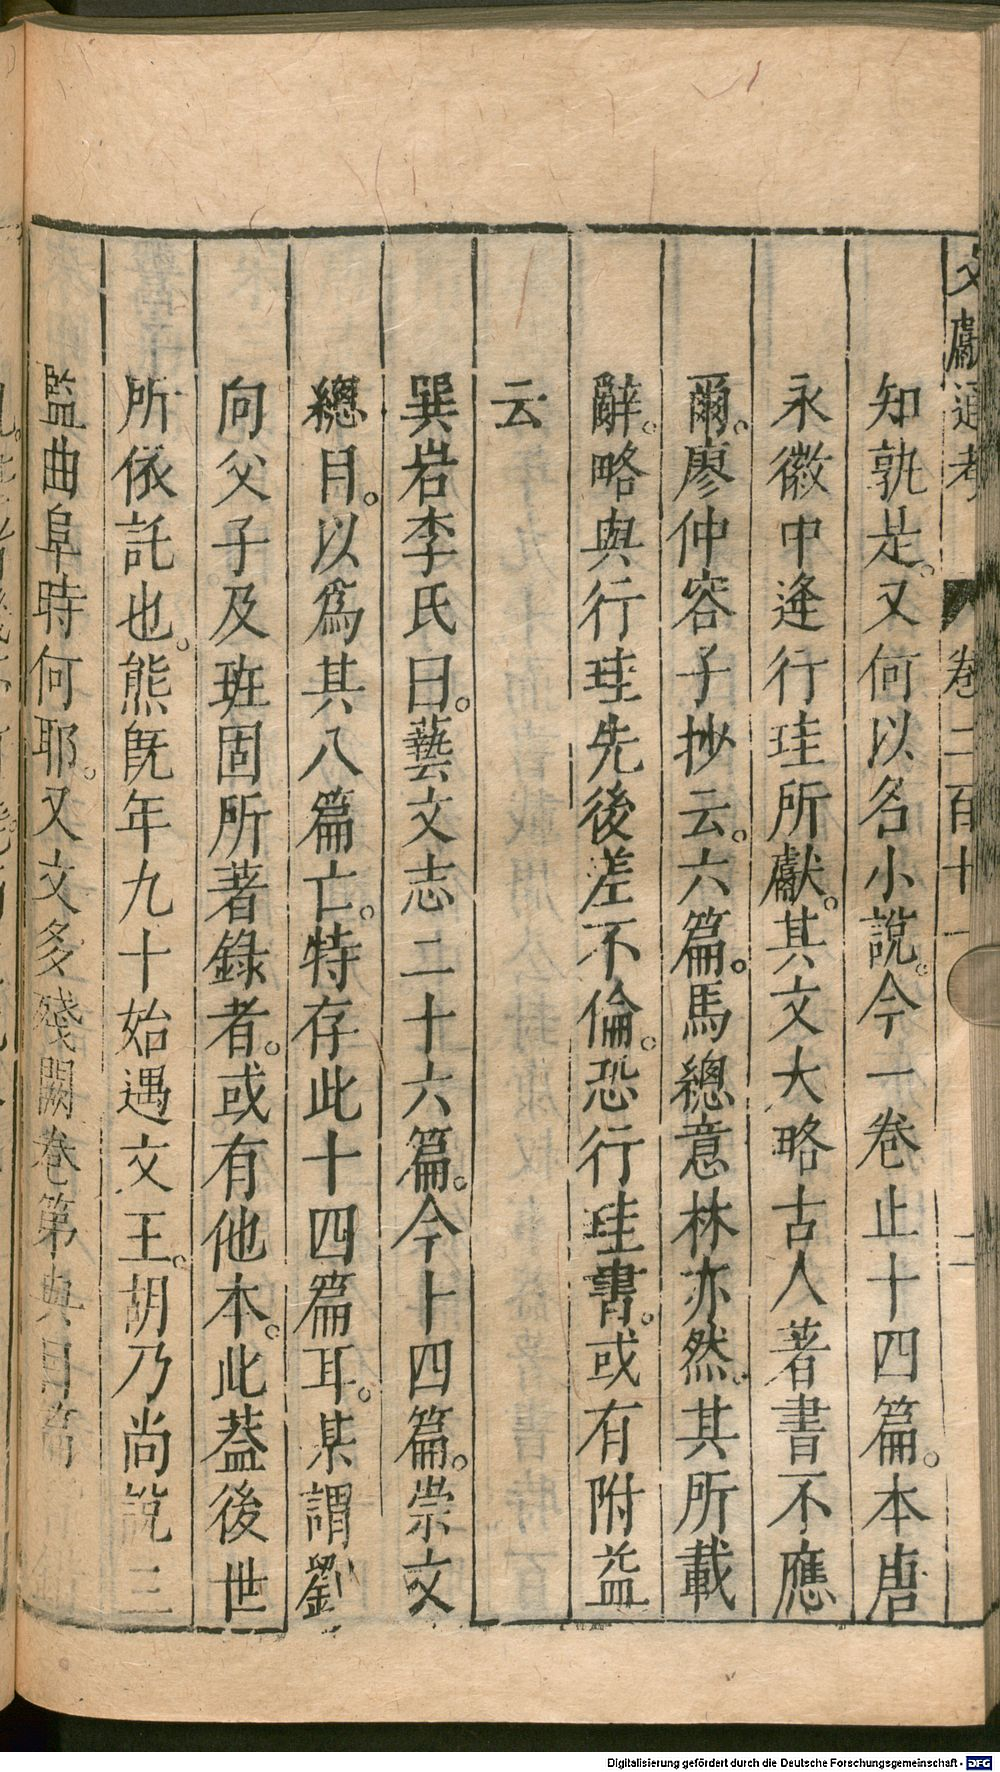 文獻通考 卷二百十一 二
知孰是。又何以名小說。今一卷止十四篇。本唐
永徽中逄行珪所獻。其文大略古人著書不應
爾。廖仲容子抄云。六篇。馬總意林亦然。其所載
辭。略與行珪先後差不倫。恐行珪書。或有附益
云
巽岩李氏曰。藝文志二十六篇。今十四篇。崇文
總目。以爲其八篇亡。特存此十四篇耳。某謂劉
向父子及班固所著錄者。或有他本。此葢後世
所依託也。熊旣年九十始遇文王。胡乃尚說三
監曲阜時何耶。又文多殘闕卷第與目篇
Digitalisierung gefördert durch die Deutsche Forschungsgemeinschaft - DFG